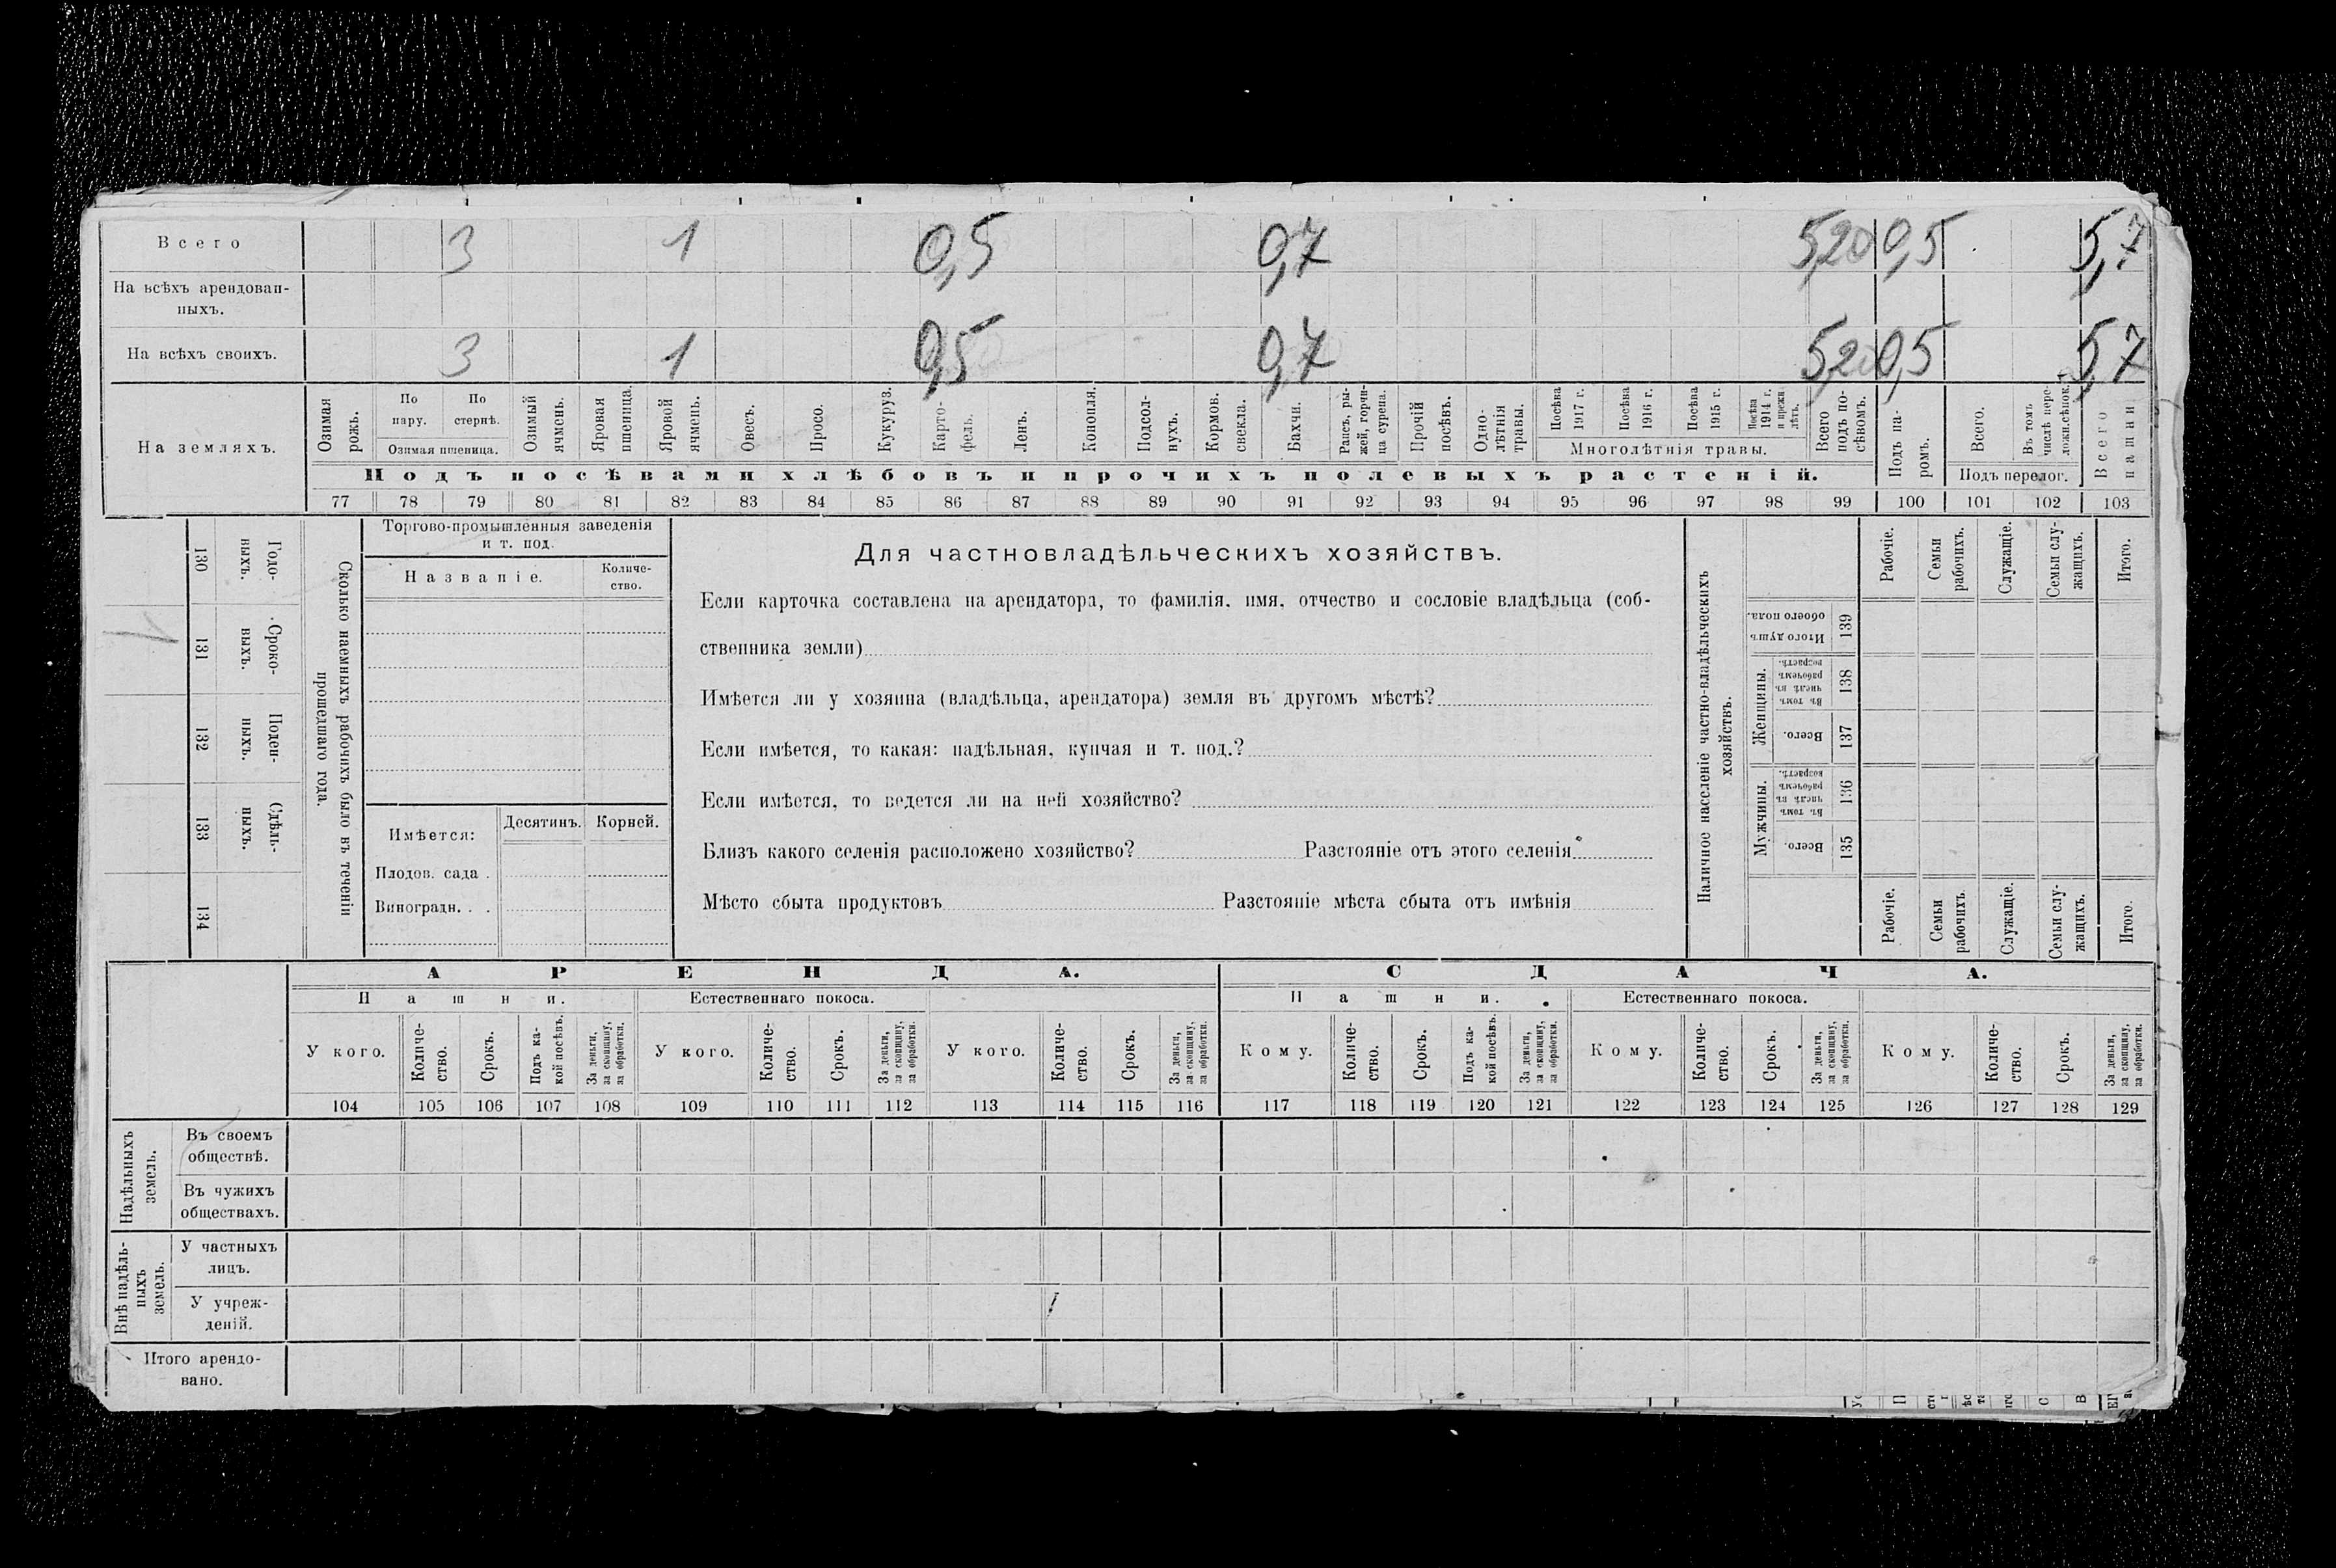 Всего 3 1 0,5 0,7 5,20 0,5 5,7
На всѣхъ арендован-
ныхъ.
На всѣхъ своихъ. 3 1 0,5 0,7 5,2 0,5 5,7
На земляхъ.
Озимая рожь.
По пару.
По стернѣ.
Озимая пшеница.
Озимый ячмень.
Яровая пшеница.
Яровой ячмень.
Овесъ.
Просо.
Кукуруз.
Карто-
фель.
Ленъ.
Конопля.
Подсол-
нухъ.
Кормов. свекла.
Бахчи.
Рапсъ, ры-
жей, горчи-
ца сурепа.
Прочій посѣвъ.
Одно-
лѣтнія травы.
Посѣва 1917 г.
Посѣва 1916 г.
Посѣва 1915 г.
Посѣва 1914 г. и прежн. лѣтъ.
Многолѣтнія травы.
Всего подъ по-
сѣвомъ.
Подъ па-
ромъ.
Всего.
Въ томъ числѣ пере-
ложн.сѣнок.
Подъ перелог.
Всего пашни
Подъ посѣвами хлѣбовъ и прочихъ полевыхъ растеній.
77 78 79 80 81 82 83 84 85 86 87 88 89 90 91 92 93 94 95 96 97 98 99 100 101 102 103
Годо-
выхъ.
130
Сроко-
выхъ.
131
Поден-
ныхъ.
132
Сдѣль-
ныхъ.
133
134
Сколько наемныхъ рабочихъ было въ теченіи
прошедшаго года.
Торгово-промышленныя заведенія
и т. под.
Названіе.
Количе-
ство.
Имѣется:
Десятинъ. Корней.
Плодов. сада .
Виноградн. . .
Для частновладѣльческихъ хозяйствъ.
Если карточка составлена на арендатора, то фамилія, имя, отчество и сословіе владѣльца (соб-
ственника земли)
Имѣется ли у хозяина (владѣльца, арендатора) земля въ другомъ мѣстѣ?
Если имѣется, то какая: надѣльная, купчая и т. под.?
Если имѣется, то ведется ли на ней хозяйство?
Близъ какого селенія расположено хозяйство? Разстояніе отъ этого селенія
Мѣсто сбыта продуктовъ Разстояніе мѣста сбыта отъ имѣнія
Наличное населеніе частно-владѣльческихъ
хозяйствъ.
Рабочіе.
Семьи рабочихъ.
Служащіе.
Семьи слу-
жащихъ.
Итого.
Итого душъ обоего пола.
139
Женщины.
Въ томъ числѣ въ рабочемъ возрастѣ.
138
Всего.
137
Мужчины.
Въ томъ числѣ въ рабочемъ возрастѣ.
136
Всего.
135
Рабочіе.
Семьи рабочихъ.
Служащіе.
Семьи слу-
жащихъ.
Итого.
АРЕНДА. СДАЧА.
Пашни. Естественнаго покоса. Пашни. Естественнаго покоса.
У кого.
Количе-
ство.
Срокъ.
Подъ ка-
кой посѣвъ.
За деньги, за скопщину, за обработки.
У кого.
Количе-
ство.
Срокъ.
За деньги, за скопщину, за обработки.
У кого.
Количе-
ство.
Срокъ.
За деньги, за скопщину, за обработки.
Кому.
Количе-
ство.
Срокъ.
Подъ ка-
кой посѣвъ.
За деньги, за скопщину, за обработки.
Кому.
Количе-
ство.
Срокъ.
За деньги, за скопщину, за обработки.
Кому.
Количе-
ство.
Срокъ.
За деньги, за скопщину, за обработки.
104 105 106 107 108 109 110 111 112 113 114 115 116 117 118 119 120 121 122 123 124 125 126 127 128 129
Надѣльныхъ
земель.
Въ своемъ
обществѣ.
Въ чужихъ
обществахъ.
Внѣ надѣль-
ныхъ
земель.
У частныхъ
лицъ.
У учреж-
деній.
Итого арендо-
вано.